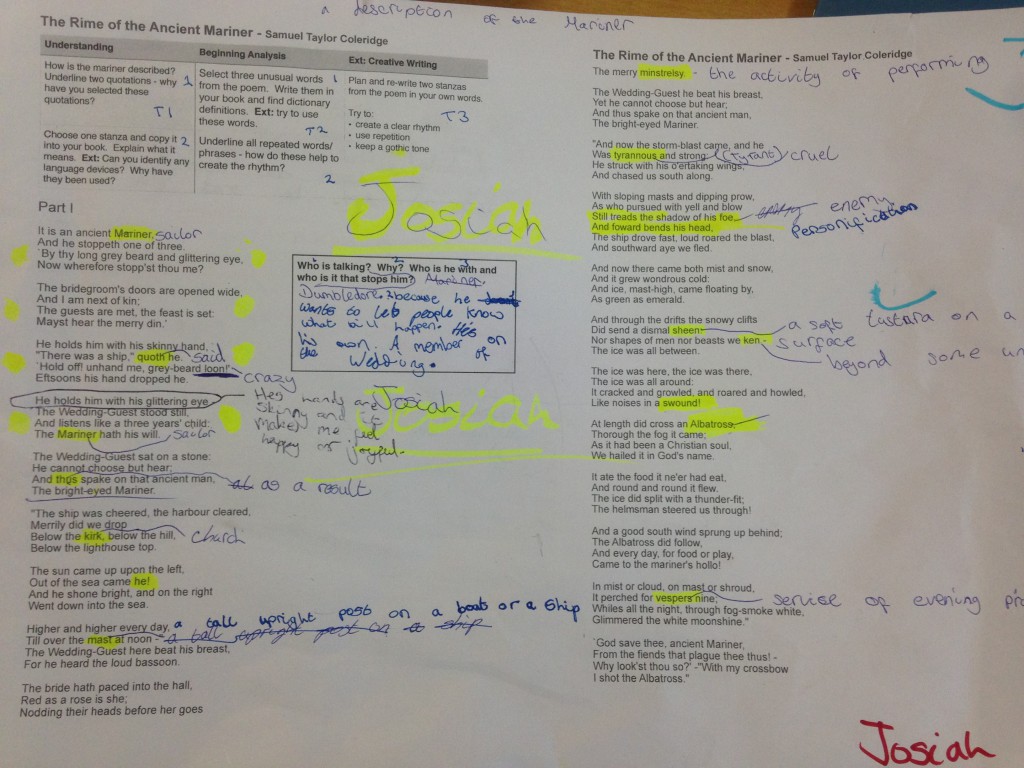 a description of the Mariner
The Rime of the Ancient Mariner - Samuel Taylor Coleridge
Understanding
Beginning Analysis
Ext: Creative Writing
How is the mariner described?
Underline two quotations - why
have you selected these
quotations?
1
T1
Select three unusual words 1
from the poem. Write them in
your book and find dictionary
definitions. Ext: try to use
these words.
T2
Plan and re-write two stanzas
from the poem in your own words.
Try to:
• create a clear rhythm
• use repetition
• keep a gothic tone
T3
Choose one stanza and copy it 2
into your book. Explain what it
means. Ext: Can you identify any
language devices? Why have
they been used?
Underline all repeated words/
phrases - how do these help to
create the rhythm?
2
Josiah
Part I
It is an ancient Mariner, sailor
And he stoppeth one of three.
'By thy long grey beard and glittering eye,
Now wherefore stopp'st thou me?
The bridegroom's doors are opened wide,
And I am next of kin;
The guests are met, the feast is set:
Mayst hear the merry din.'
He holds him with his skinny hand,
"There was a ship," quoth he. said
'Hold off! unhand me, grey-beard loon!'
Eftsoons his hand dropped he. crazy
He holds him with his glittering eye
The Wedding-Guest stood still,
And listens like a three years' child:
The Mariner hath his will. Sailor
The Wedding-Guest sat on a stone:
He cannot choose but hear;
And thus spake on that ancient man, as a result
The bright-eyed Mariner.
"The ship was cheered, the harbour cleared,
Merrily did we drop
Below the kirk, below the hill, church
Below the lighthouse top.
The sun came up upon the left,
Out of the sea came he!
And he shone bright, and on the right
Went down into the sea.
Higher and higher every day, a tall upright post on a boat or a ship
Till over the mast at noon - a tall upright post on a ship
The Wedding-Guest here beat his breast,
For he heard the loud bassoon.
The bride hath paced into the hall,
Red as a rose is she;
Nodding their heads before her goes
Who is talking? Why? Who is he with and
who is it that stops him? Mariner.
Dumbledore. because he
wants to let people know
what will happen. He's on
his own. A member of
the Wedding.
Hes handy are
skinny and it
makes me feel
happy or joyful.
Josiah
Josiah
The Rime of the Ancient Mariner - Samuel Taylor Coleridge
The merry minstrelsy. - the activity of performing
The Wedding-Guest he beat his breast,
Yet he cannot choose but hear;
And thus spake on that ancient man,
The bright-eyed Mariner.
"And now the storm-blast came, and he
Was tyrannous and strong: (tyrant) cruel
He struck with his o'ertaking wings,
And chased us south along.
With sloping masts and dipping prow,
As who pursued with yell and blow
Still treads the shadow of his foe, enemy
And foward bends his head, personification
The ship drove fast, loud roared the blast,
And southward aye we fled.
And now there came both mist and snow,
And it grew wondrous cold:
And ice, mast-high, came floating by,
As green as emerald.
And through the drifts the snowy clifts
Did send a dismal sheen: a soft lustara on a
Nor shapes of men nor beasts we ken - surface
The ice was all between. beyond some
The ice was here, the ice was there,
The ice was all around:
It cracked and growled, and roared and howled,
Like noises in a swound!
At length did cross an Albatross,
Thorough the fog it came;
As it had been a Christian soul,
We hailed it in God's name.
It ate the food it ne'er had eat,
And round and round it flew.
The ice did split with a thunder-fit;
The helmsman steered us through!
And a good south wind sprung up behind;
The Albatross did follow,
And every day, for food or play,
Came to the mariner's hollo!
In mist or cloud, on mast or shroud,
It perched for vespers nine; servise of evening
Whiles all the night, through fog-smoke white,
Glimmered the white moonshine."
'God save thee, ancient Mariner,
From the fiends that plague thee thus! -
Why look'st thou so?' -"With my crossbow
I shot the Albatross."
Josiah